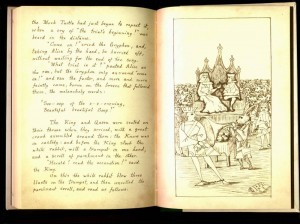 the Mock Turtle had just begun to repeat it,
when a cry of "the trial's beginning!" was
heard in the distance.
"Come on!" cried the Gryphon, and,
taking Alice by the hand, he hurried off,
without waiting for the end of the song.
"What trial is it?" panted Alice as
she ran, but the Gryphon only answered "come
on," and ran the faster, and more and more
faintly came, borne on the breeze that followed
them, the melancholy words:
"Soo-oop of the e-e-evening,
Beautiful beautiful Soup!"
The King and Queen were seated on
their throne when they arrived, with a great
crowd assembled around them: the Knave was
in custody: and before the King stood the
white rabbit, with a trumpet in one hand,
and a scroll of parchment in the other.
"Herald! read the accusation!" said
the King.
On this the white rabbit blew three
blasts on the trumpet, and then unrolled the
parchment scroll, and read as follows: